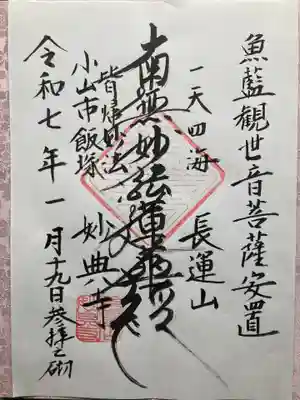 魚藍観世音菩薩安置
一天四海 長運山
南無妙法蓮華経
皆帰妙法 妙典寺
小山市飯塚
令和七年一月十九日参拝之砌